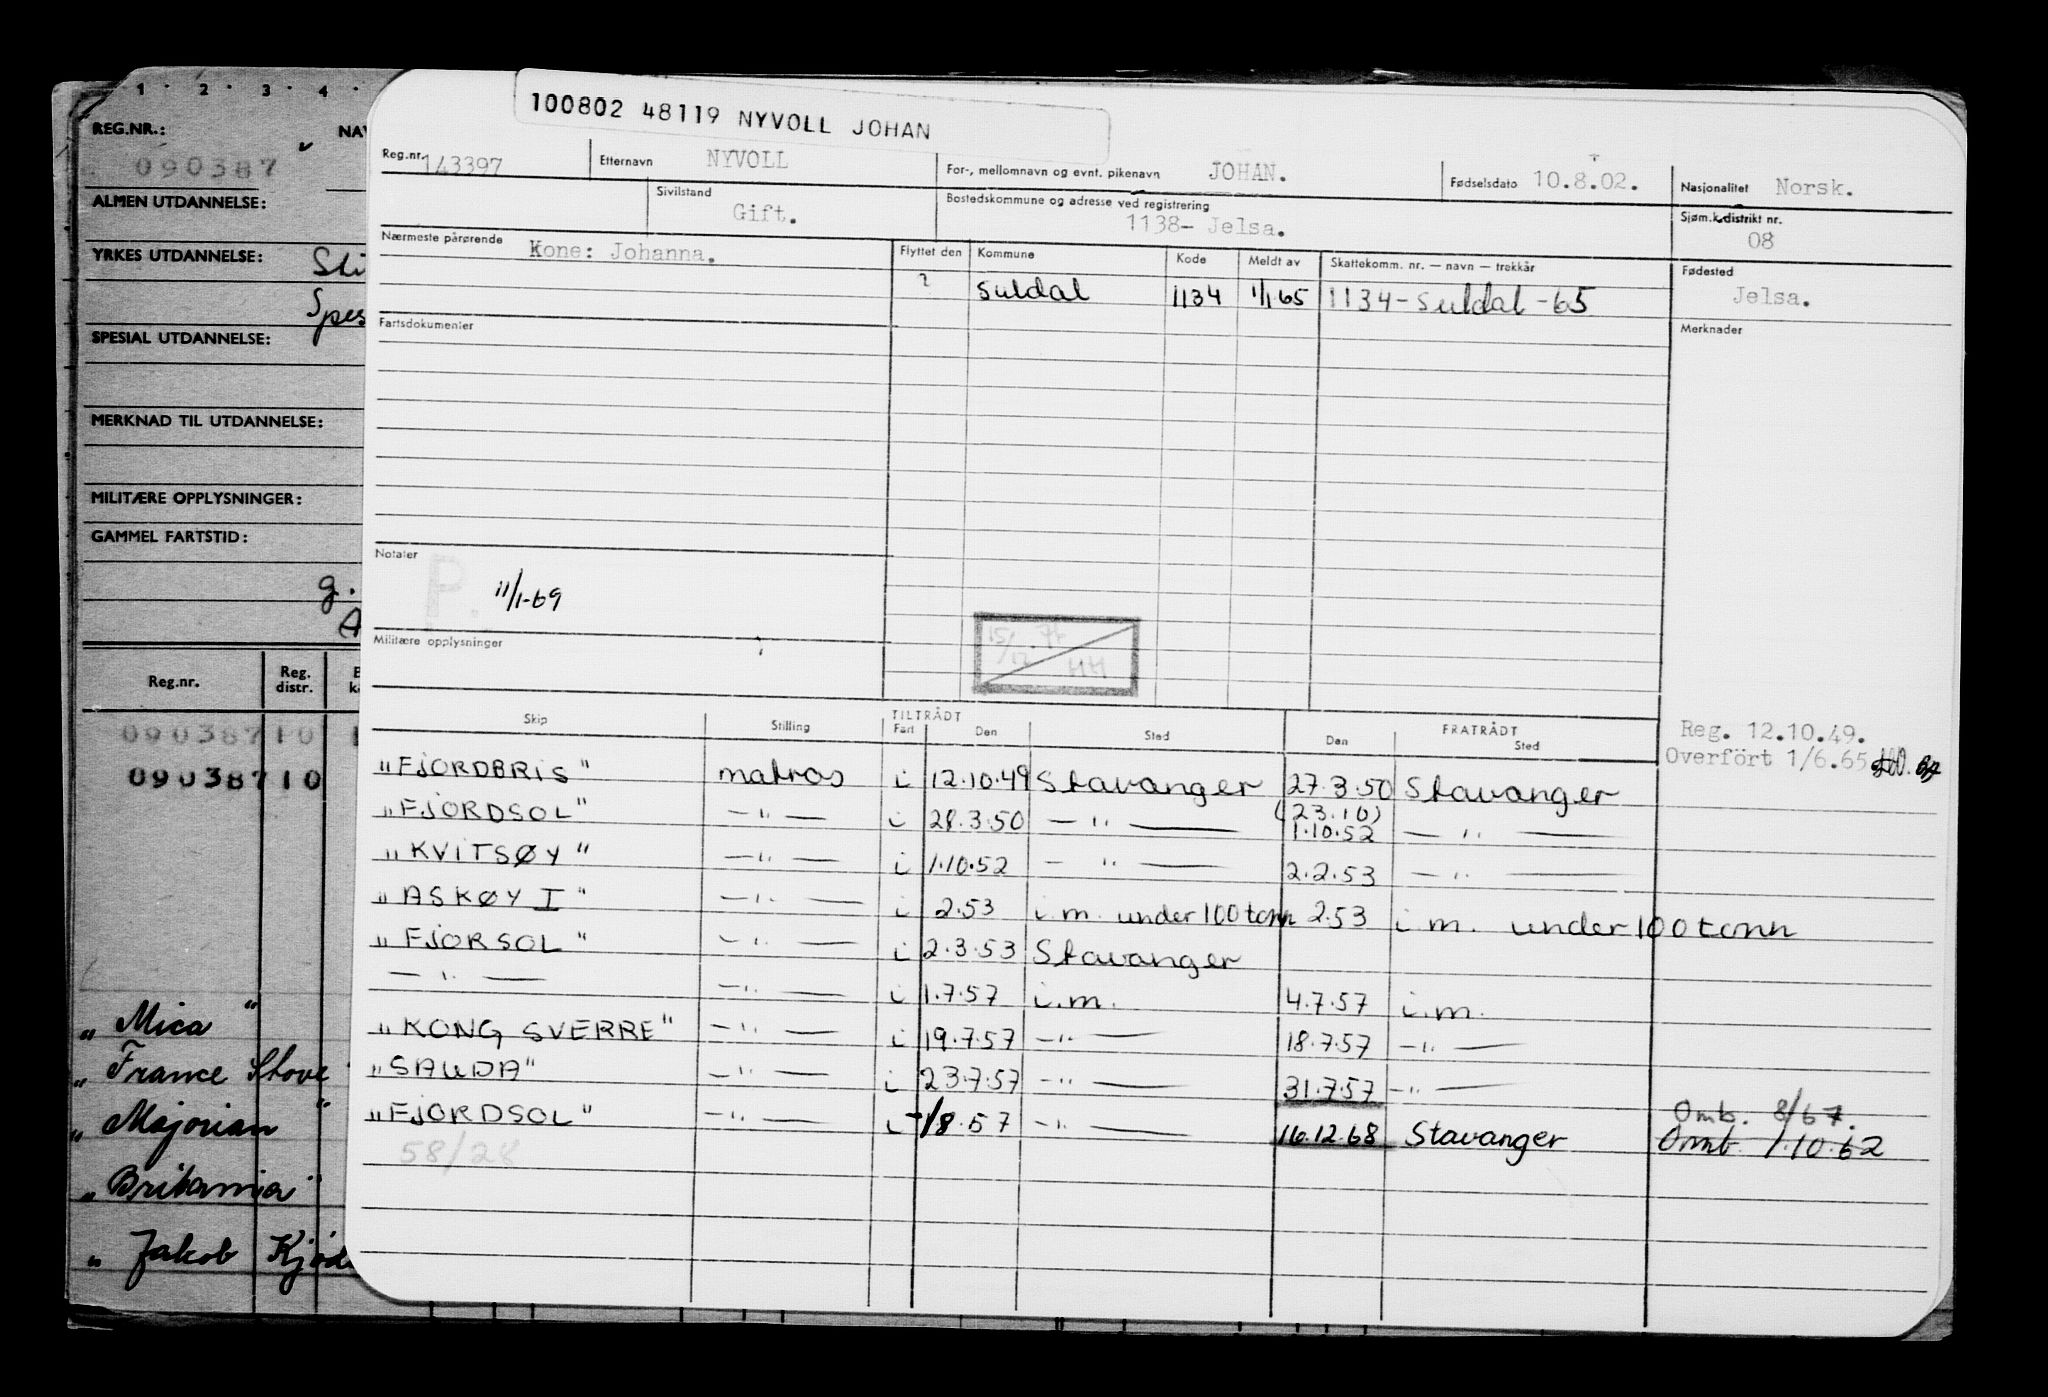 1 · 2 · 3 · 4 ·
REG.NR.:
090387
ALMEN UTDANNELSE:
YRKES UTDANNELSE:
SPESIAL UTDANNELSE:
MERKNAD TIL UTDANNELSE:
MILITÆRE OPPLYSNINGER:
GAMMEL FARTSTID:
g.
A
Reg.nr. Reg. distr.
09038710
09038710
„ Mica "
„ France Stove
„ Majorian "
„ Britannia "
„ Jakob Kjøde
100802 48119 NYVOLL JOHAN
Reg.nr. 143397 Etternavn NYVOLL For-, mellomnavn og evnt. pikenavn JOHAN. Fødselsdato 10.8.02. Nasjonalitet Norsk.
Sivilstand Gift. Bostedskommune og adresse ved registrering 1138- Jelsa. Sjøm.k.distrikt nr. 08
Nærmeste pårørende Kone: Johanna. Flyttet den Kommune Kode Meldt av Skattekomm. nr. — navn — trekkår Fødested Jelsa.
? Suldal 1134 1/1 65 1134-Suldal-65
Fartsdokumenter Merknader
Notater
P. 11/1-69
Militære opplysninger
15/12.77 HH
Skip Stilling TILTRÅDT Fart Den Sted FRATRÅDT Den Sted
Reg. 12.10.49.
Overfört 1/6.65
"FJORDBRIS" matros i 12.10.49 Stavanger 27.3.50 Stavanger
(23.10)
"FJORDSOL" —"— i 28.3.50 —"— 1.10.52 —"—
"KVITSØY" —"— i 1.10.52 —"— 2.2.53 —"—
"ASKØY I" —"— i 2.53 i.m. under 100 tonn 2.53 i.m. under 100 tonn
"FJORSOL" —"— i 2.3.53 Stavanger
—"— —"— i 1.7.57 i.m. 4.7.57 i.m.
"KONG SVERRE" —"— i 19.7.57 —"— 18.7.57 —"—
"SAUDA" —"— i 23.7.57 —"— 31.7.57 —"—
Omb. 8/67.
"FJORDSOL" —"— i -/8.57 —"— 16.12.68 Stavanger Omb. 1.10.62
58/28